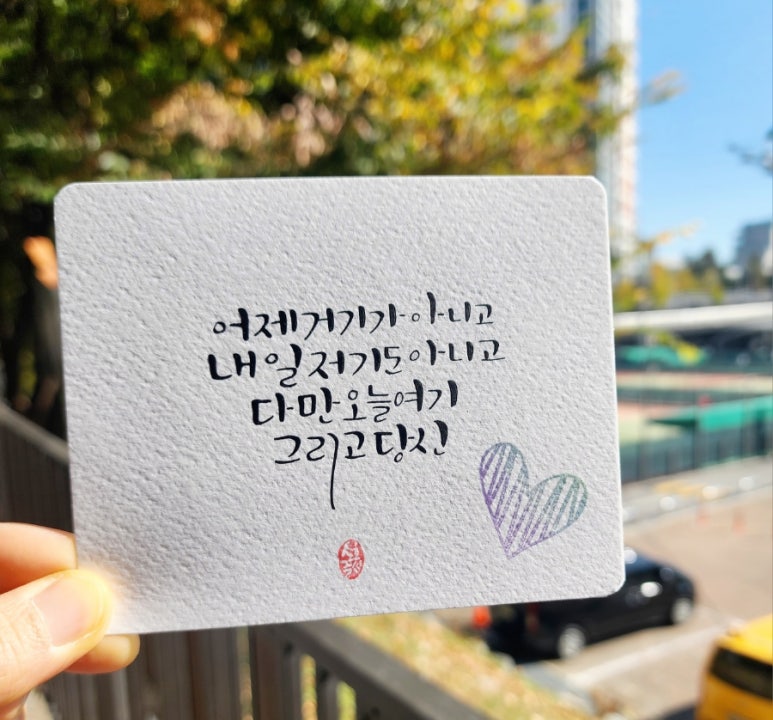 어제 거기가 아니고
내일 저기도 아니고
다만 오늘 여기
그리고 당신